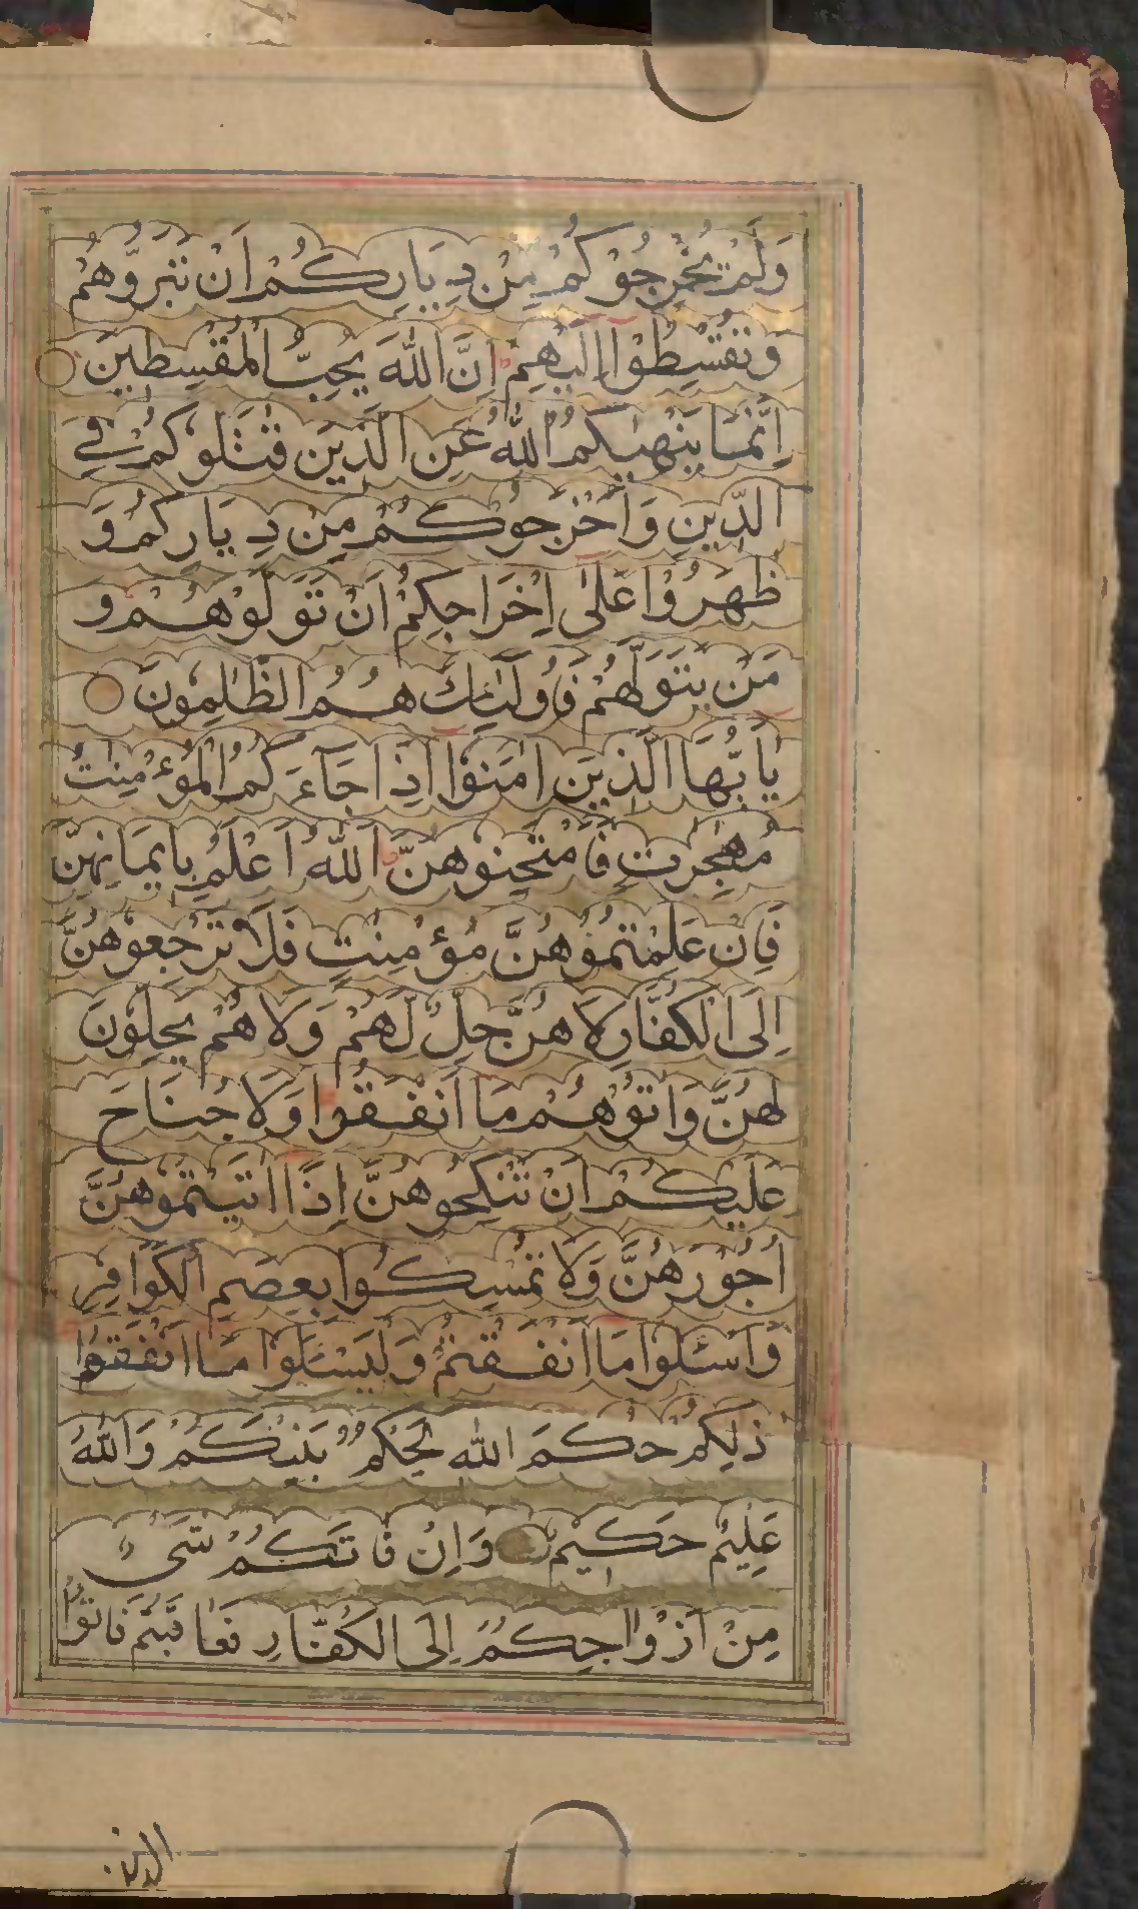 وَلَمْ يُخْرِجُوْكُمْ مِنْ دِيَارِكُمْ اَنْ تَبَرُّوْهُمْ
وَتُقْسِطُوْا اِلَيْهِمْ اِنَّ اللّٰهَ يُحِبُّ الْمُقْسِطِينَ
اِنَّمَا يَنْهٰيكُمُ اللّٰهُ عَنِ الَّذِيْنَ قٰتَلُوكُمْ فِي
الدِّينِ وَاَخْرَجُوكُمْ مِنْ دِيَارِكُمْ وَ
ظٰهَرُوْا عَلٰى اِخْرَاجِكُمْ اَنْ تَوَلَّوْهُمْ وَ
مَنْ يَتَوَلَّهُمْ فَاُولٰئِكَ هُمُ الظّٰلِمُونَ
يٰا اَيُّهَا الَّذِيْنَ اٰمَنُوْا اِذَا جَآءَكُمُ الْمُؤْمِنٰتُ
مُهٰجِرٰتٍ فَامْتَحِنُوْهُنَّ اَللّٰهُ اَعْلَمُ بِاِيْمَانِهِنَّ
فَاِنْ عَلِمْتُمُوْهُنَّ مُؤْمِنٰتٍ فَلَا تَرْجِعُوْهُنَّ
اِلَى الْكُفَّارِ لَا هُنَّ حِلٌّ لَهُمْ وَلَا هُمْ يَحِلُّوْنَ
لَهُنَّ وَاٰتُوْهُمْ مَا اَنْفَقُوْا وَلَا جُنَاحَ
عَلَيْكُمْ اَنْ تَنْكِحُوهُنَّ اِذَا اٰتَيْتُمُوْهُنَّ
اُجُوْرَهُنَّ وَلَا تُمْسِكُوا بِعِصَمِ الْكَوَافِرِ
وَاسْئَلُوا مَا اَنْفَقْتُمْ وَلْيَسْئَلُوا مَا اَنْفَقُوْا
ذٰلِكُمْ حُكْمُ اللّٰهِ يَحْكُمُ بَيْنَكُمْ وَاللّٰهُ
عَلِيْمٌ حَكِيْمٌ وَاِنْ فَاتَكُمْ شَيْءٌ
مِنْ اَزْوَاجِكُمْ اِلَى الْكُفَّارِ فَعَاقَبْتُمْ فَاٰتُوا
الذين